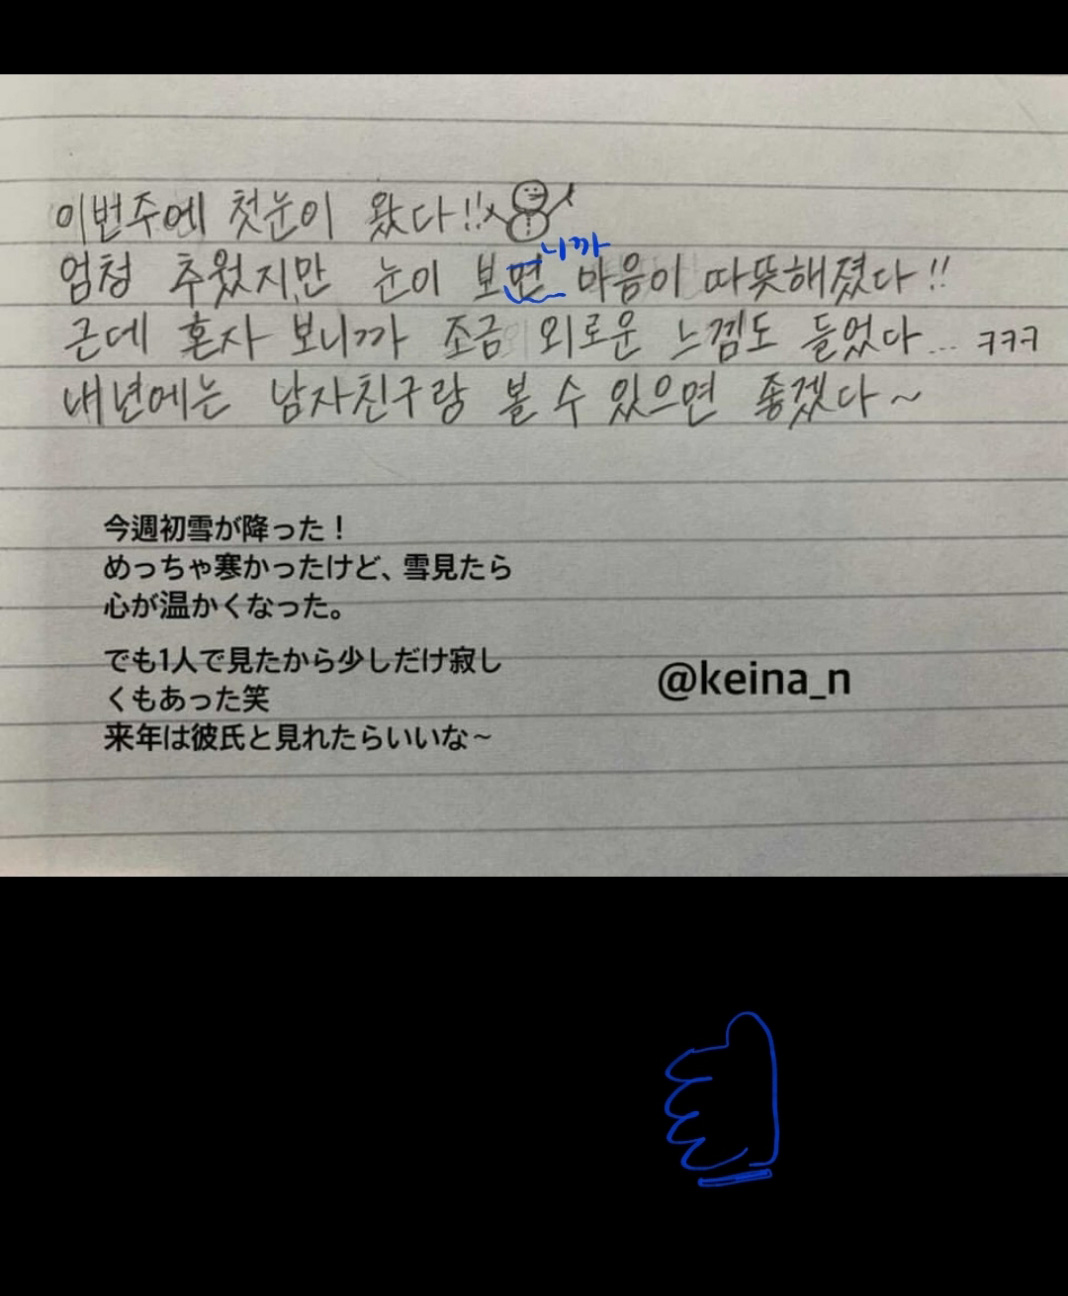 이번주에 첫눈이 왔다!!
니까
엄청 추웠지만 눈이 보면 마음이 따뜻해졌다!!
근데 혼자 보니까 조금 외로운 느낌도 들었다... ㅋㅋㅋ
내년에는 남자친구랑 볼 수 있으면 좋겠다~
今週初雪が降った！
めっちゃ寒かったけど、雪見たら
心が温かくなった。
でも1人で見たから少しだけ寂し
くもあった笑
来年は彼氏と見れたらいいな~
@keina_n